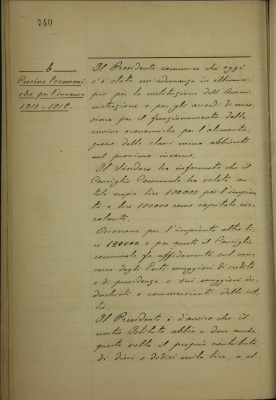 740
6
Cucine Economi-
che per l'inverno
1917-1918.
Il Presidente comunica che oggi
c'è stata un'adunanza in Munici-
pio per la costituzione dell'Ammi-
nistrazione e per gli accordi di mas-
sima per il funzionamento delle
cucine economiche per l'alimenta-
zione delle classi meno abbienti
nel prossimo inverno.
Il Sindaco ha informato che il
Consiglio Comunale ha votato
lire 100000 per l'impian-
to e lire 100000 come capitale cir-
colante.
Occorrono per l'impianto altre li-
re 120000 e per queste il Consiglio
comunale fa affidamento sul con-
corso degli Enti maggiori di credito
e di previdenza e sui maggiori in-
dustriali e commercianti della cit-
tà.
Il Presidente è d'avviso che il
nostro Istituto abbia a dare anche
questa volta il proprio contributo
di dieci o dodici mila lire, e, al